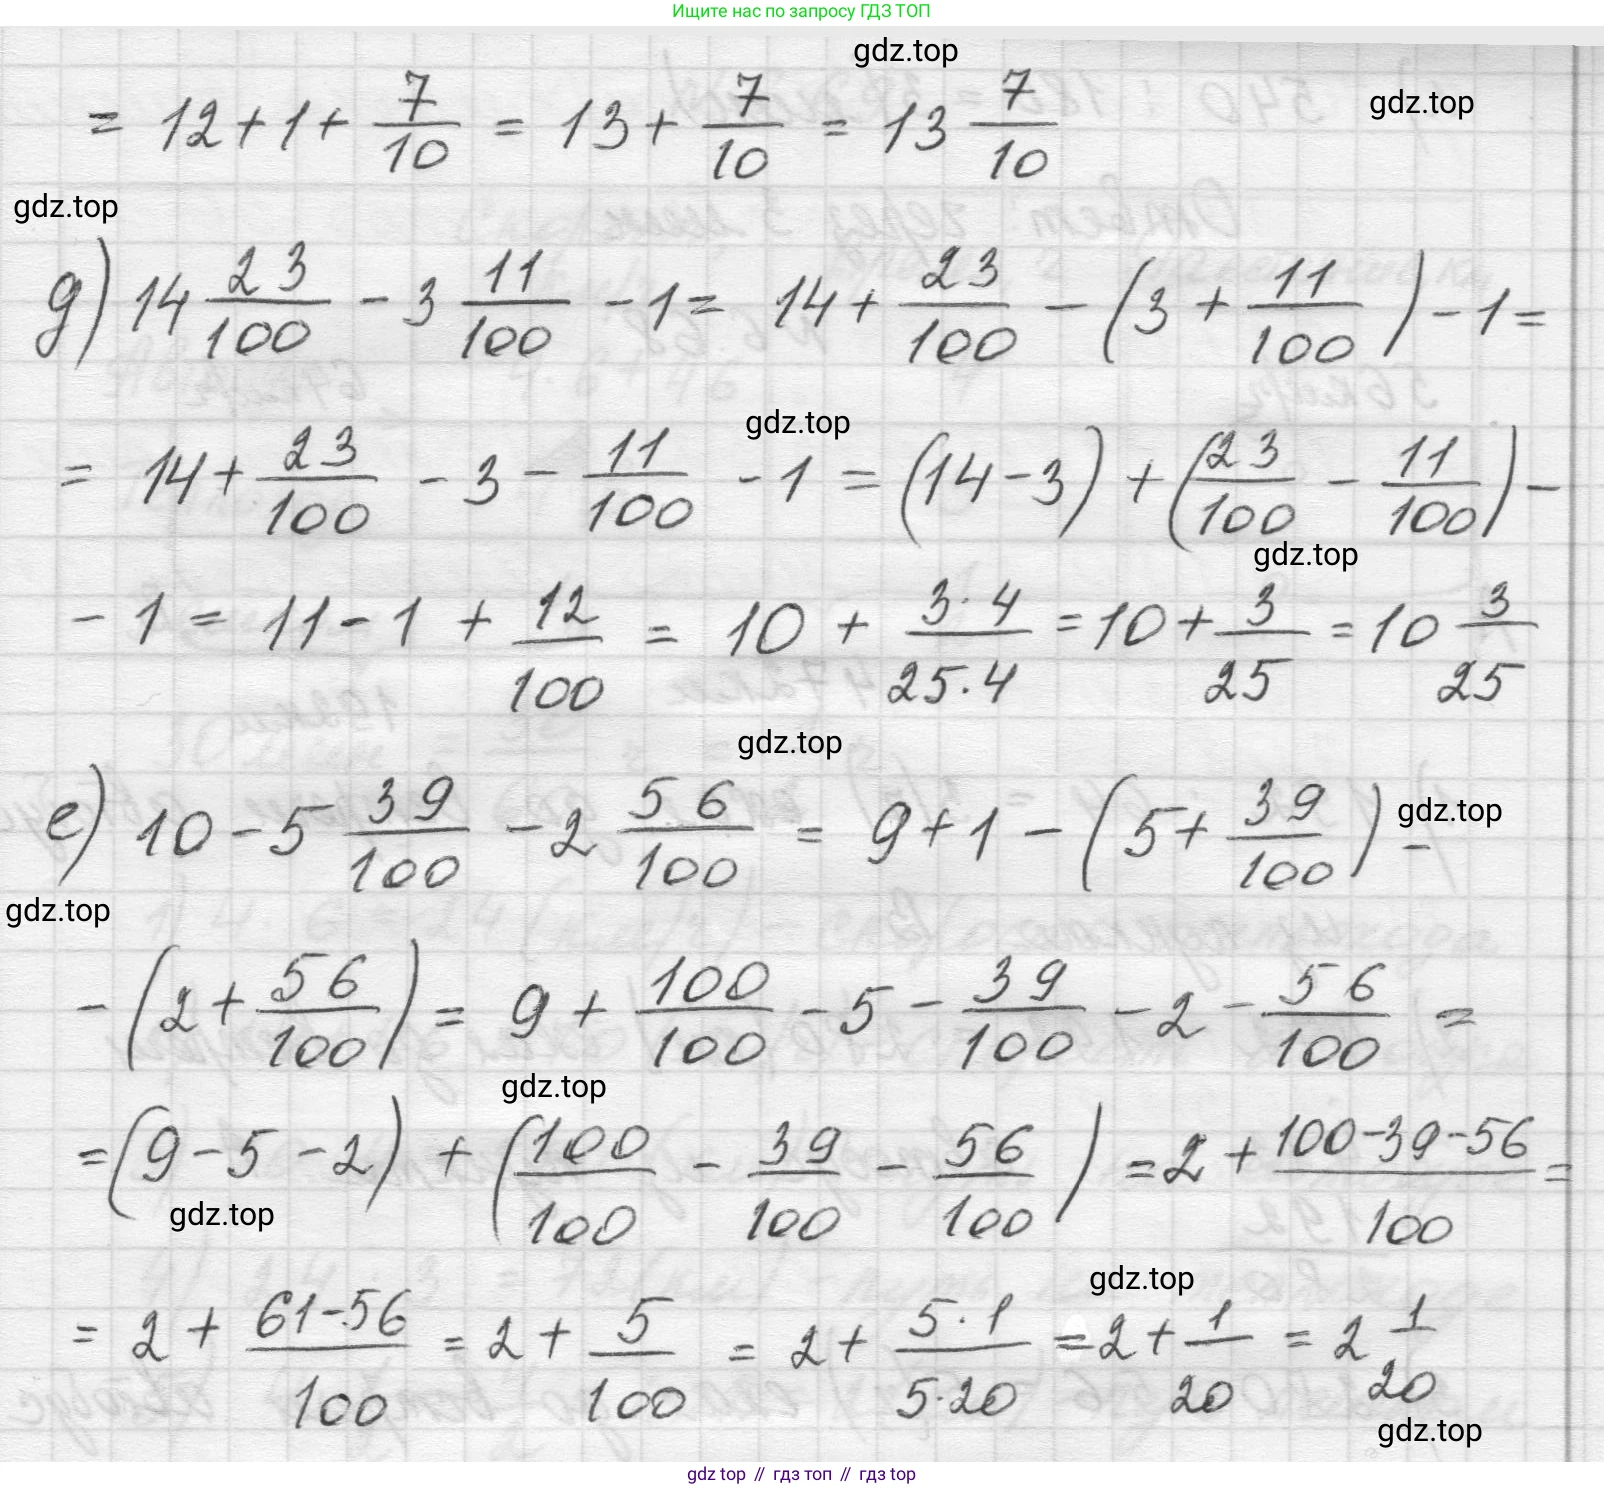 Ищите нас по запросу ГДЗ ТОП
gdz.top
= 12 + 1 + 7/10 = 13 + 7/10 = 13 7/10
gdz.top
gdz.top
д) 14 23/100 - 3 11/100 - 1 = 14 + 23/100 - (3 + 11/100) - 1 =
gdz.top
= 14 + 23/100 - 3 - 11/100 - 1 = (14 - 3) + (23/100 - 11/100) -
gdz.top
- 1 = 11 - 1 + 12/100 = 10 + 3·4/25·4 = 10 + 3/25 = 10 3/25
gdz.top
е) 10 - 5 39/100 - 2 56/100 = 9 + 1 - (5 + 39/100) -
gdz.top
gdz.top
- (2 + 56/100) = 9 + 100/100 - 5 - 39/100 - 2 - 56/100 =
gdz.top
= (9 - 5 - 2) + (100/100 - 39/100 - 56/100) = 2 + 100-39-56/100 =
gdz.top
gdz.top
= 2 + 61-56/100 = 2 + 5/100 = 2 + 5·1/5·20 = 2 + 1/20 = 2 1/20
gdz.top
gdz top // гдз топ // gdz top